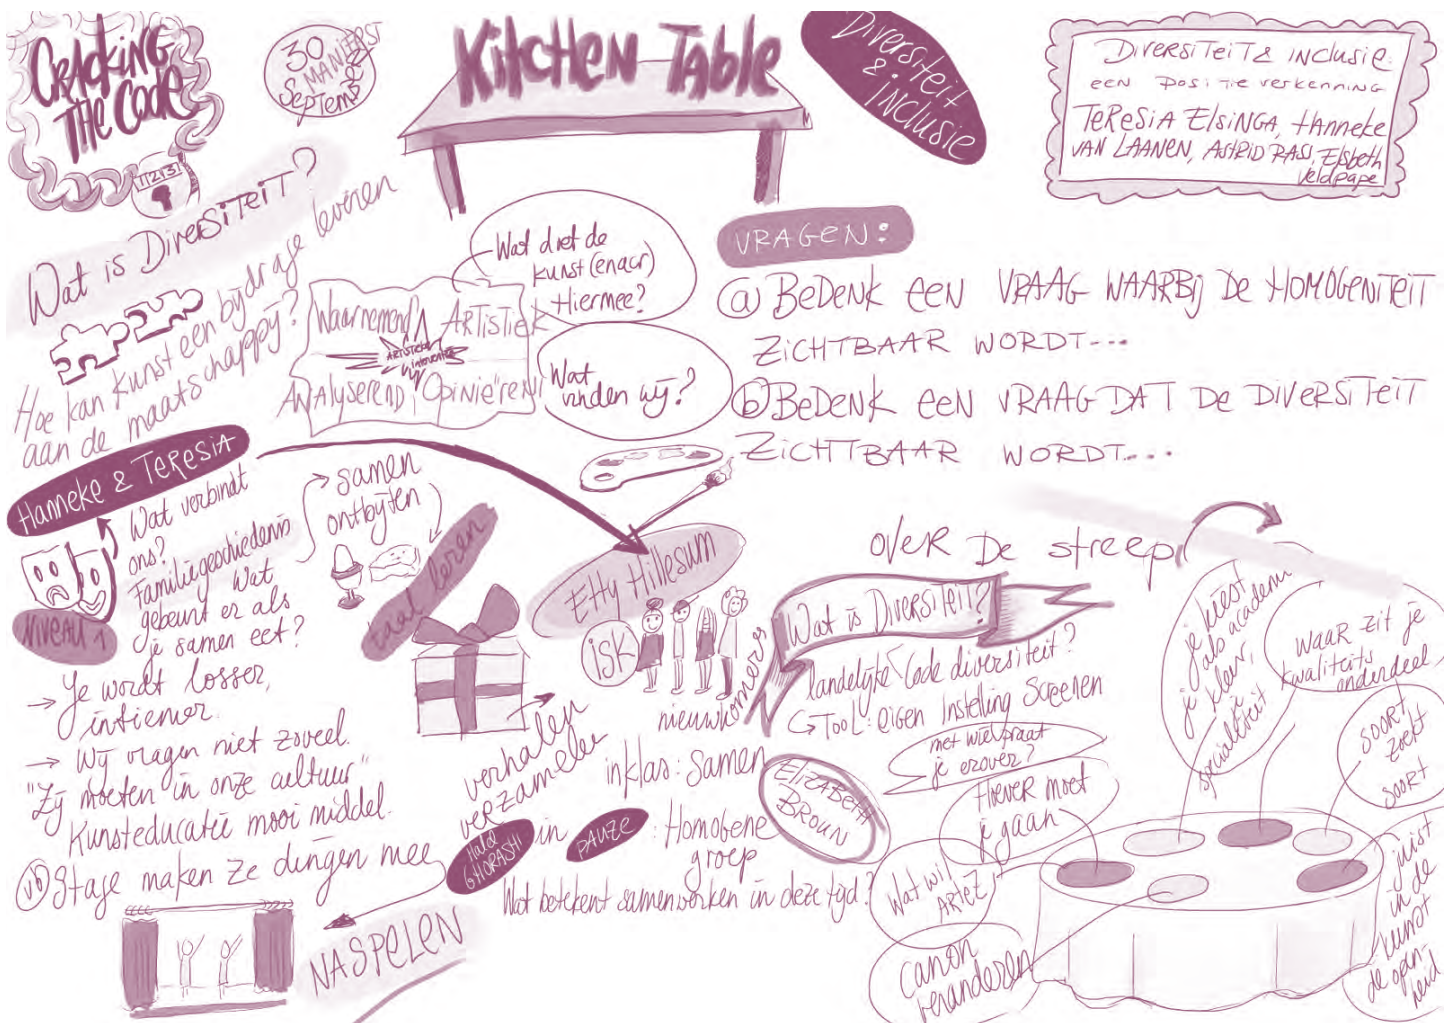 CRACKING
THE CODE
11213
30
MANIFEST
September
Kitchen Table
Diversiteit
&
INCLUSIE
DIVERSITEIT & INCLUSIE:
een positie verkenning
TERESIA ELSINGA, Hanneke
VAN LAANEN, ASTRID RASS, Elsbeth
Veldpape
Wat is DIVERSITEIT?
Hoe kan kunst een bijdrage leveren
aan de maatschappij?
Waarnemend
ARTISTIEK
ARTISTIEKE
interventie
Analyserend
Opiniërend
Wat doet de
kunst(enaar)
Hiermee?
Wat
vinden wij?
VRAGEN:
a) BEDENK EEN VRAAG WAARBIJ DE HOMOGENITEIT
ZICHTBAAR WORDT...
b) BEDENK EEN VRAAG DAT DE DIVERSITEIT
ZICHTBAAR WORDT...
Hanneke & TERESIA
Wat verbindt
ons?
Familiegeschiedenis
Wat
gebeurt er als
je samen eet?
NIVEAU 1
→ Je wordt losser,
intiemer.
→ Wij vragen niet zoveel.
"Zij moeten in onze cultuur"
Kunsteducatie mooi middel.
vb Stage maken ze dingen mee
samen
ontbijten
taal leren
Etty Hillesum
isk
nieuwkomers
verhalen
verzamelen
Halleh
GHORASHI
NASPELEN
in klas: Samen
in PAUZE: Homogene
groep
Wat betekent samenwerken in deze tijd?
ELIZABETH
BROUN
over De streep
Wat is Diversiteit?
landelijke Code diversiteit?
TOOL: eigen Instelling Screenen
met wie praat
je erover?
Hoever moet
je gaan
Wat wil
ARTEZ
canon
veranderen
je kiest
als academie
je kleur,
je
socialiteit
WAAR zit je
kwaliteits
onderdeel
soort
zoekt
soort
juist
in de
kunst
de open-
heid